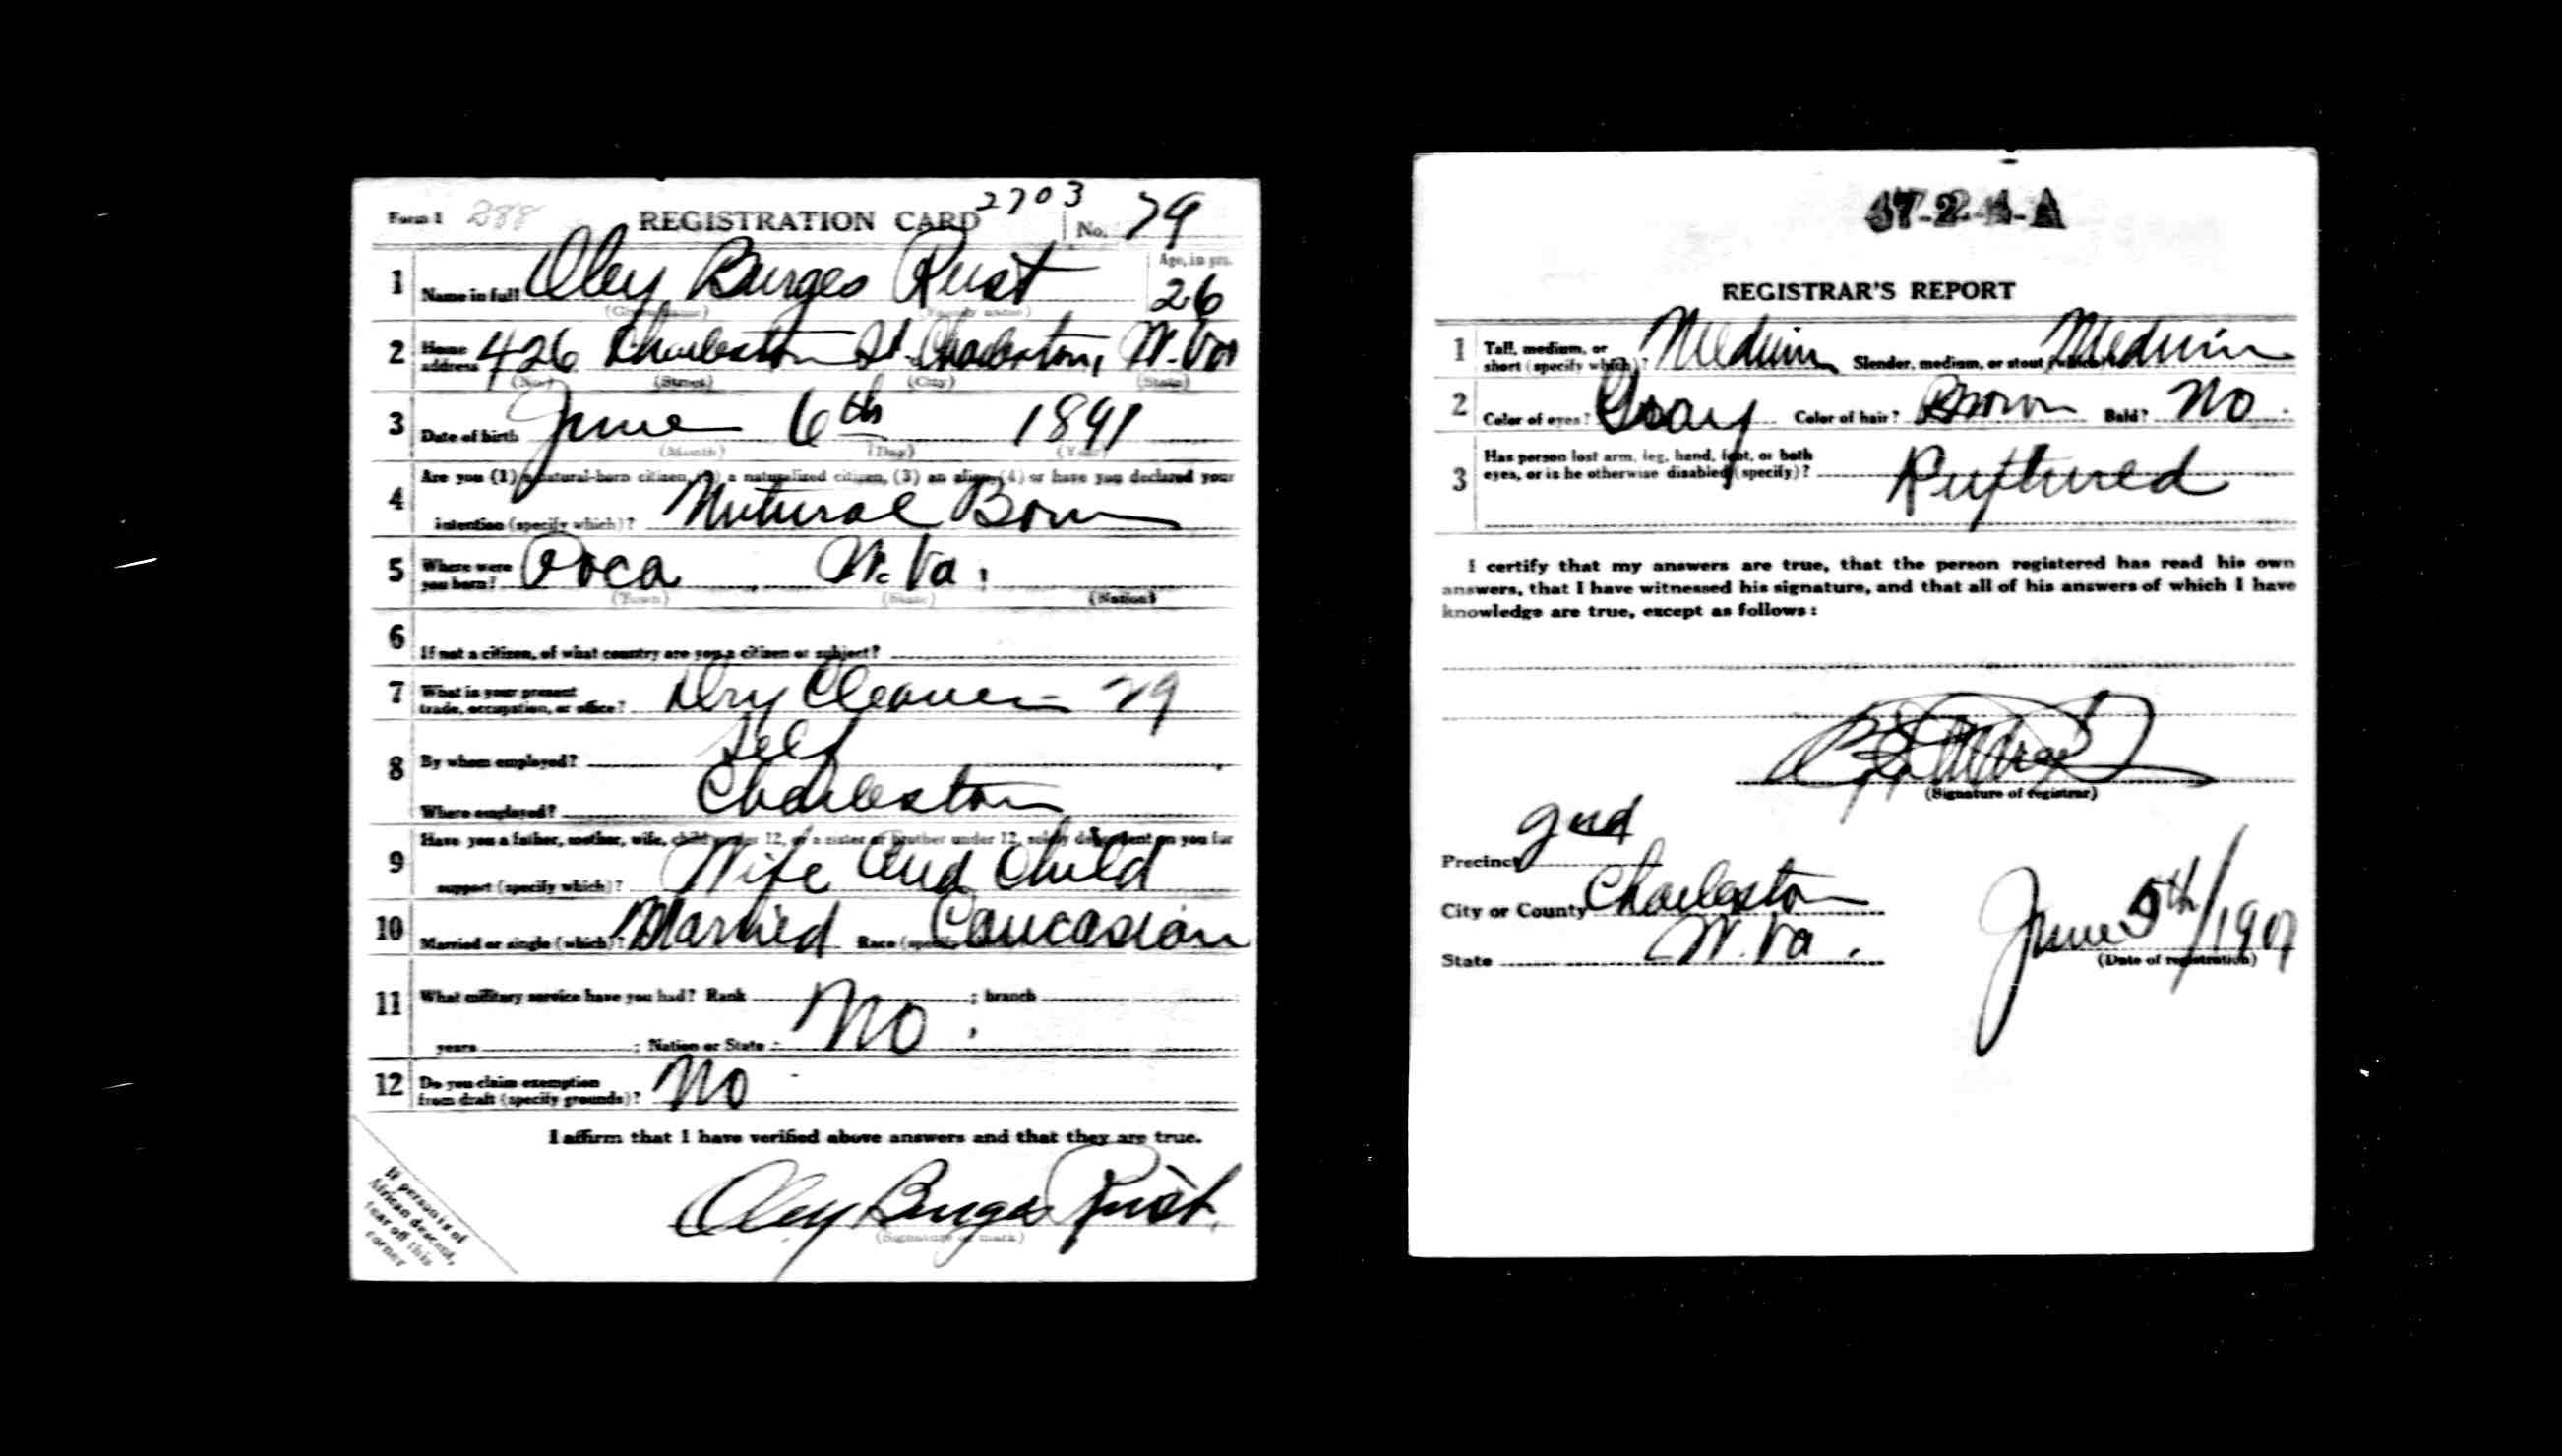 Form 1 288 REGISTRATION CARD 2703 No. 79
1 Name in full Oley Burges Rust Age, in yrs. 26
(Given name) (Family name)
2 Home address 426 Charleston St. Charleston, W. Va
(No.) (Street) (City) (State)
3 Date of birth June 6th 1891
(Month) (Day) (Year)
4 Are you (1) a natural-born citizen, (2) a naturalized citizen, (3) an alien, (4) or have you declared your
intention (specify which)? Natural Born
5 Where were you born? Poca W. Va.
(Town) (State) (Nation)
6 If not a citizen, of what country are you a citizen or subject?
7 What is your present trade, occupation, or office? Dry Cleaner 29
8 By whom employed? Self
Where employed? Charleston
9 Have you a father, mother, wife, child under 12, or a sister or brother under 12, solely dependent on you for
support (specify which)? Wife and Child
10 Married or single (which)? Married Race (specify Caucasian
11 What military service have you had? Rank No ; branch
years ; Nation or State
12 Do you claim exemption from draft (specify grounds)? No
I affirm that I have verified above answers and that they are true.
Oley Burges Rust.
(Signature or mark)
If person is of
African descent,
tear off this
corner
47-2-4-A
REGISTRAR'S REPORT
1 Tall, medium, or short (specify which)? Medium Slender, medium, or stout (which)? Medium
2 Color of eyes? Gray Color of hair? Brown Bald? No.
3 Has person lost arm, leg, hand, foot, or both
eyes, or is he otherwise disabled (specify)? Ruptured
I certify that my answers are true, that the person registered has read his own
answers, that I have witnessed his signature, and that all of his answers of which I have
knowledge are true, except as follows:
(Signature of registrar)
Precinct
City or County Charleston
State W. Va.
June 5th/1917
(Date of registration)